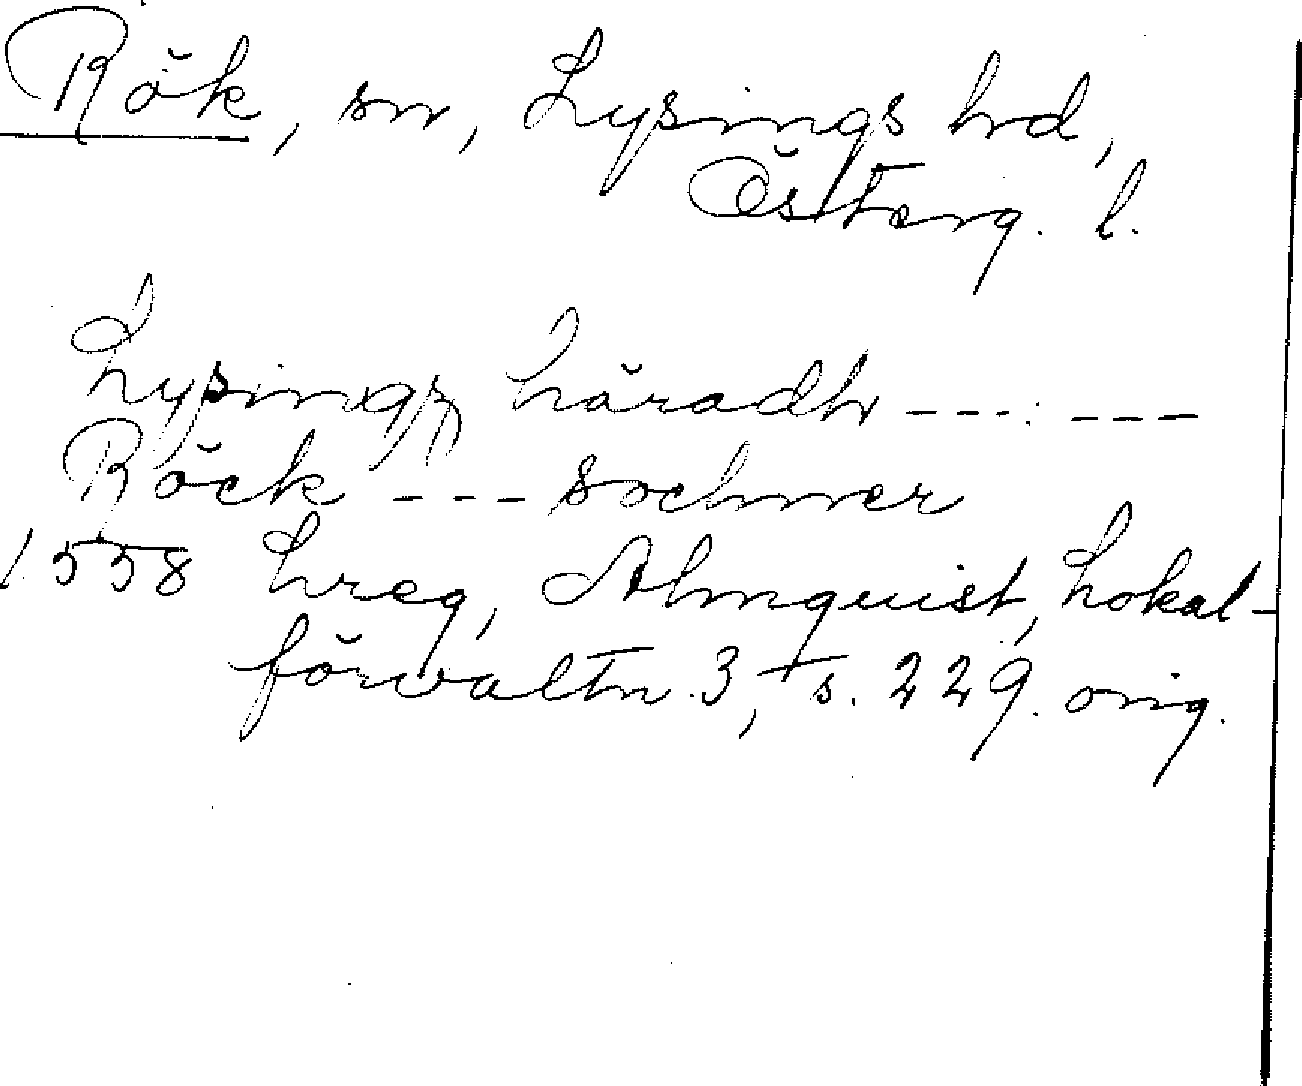 Rök, sn, Lysings hrd,
Österg. l.
Lysingz häradh --- ---
Röck --- sochner
1558 Lreg, Almquist, Lokal-
förvaltn. 3, s. 229. orig.